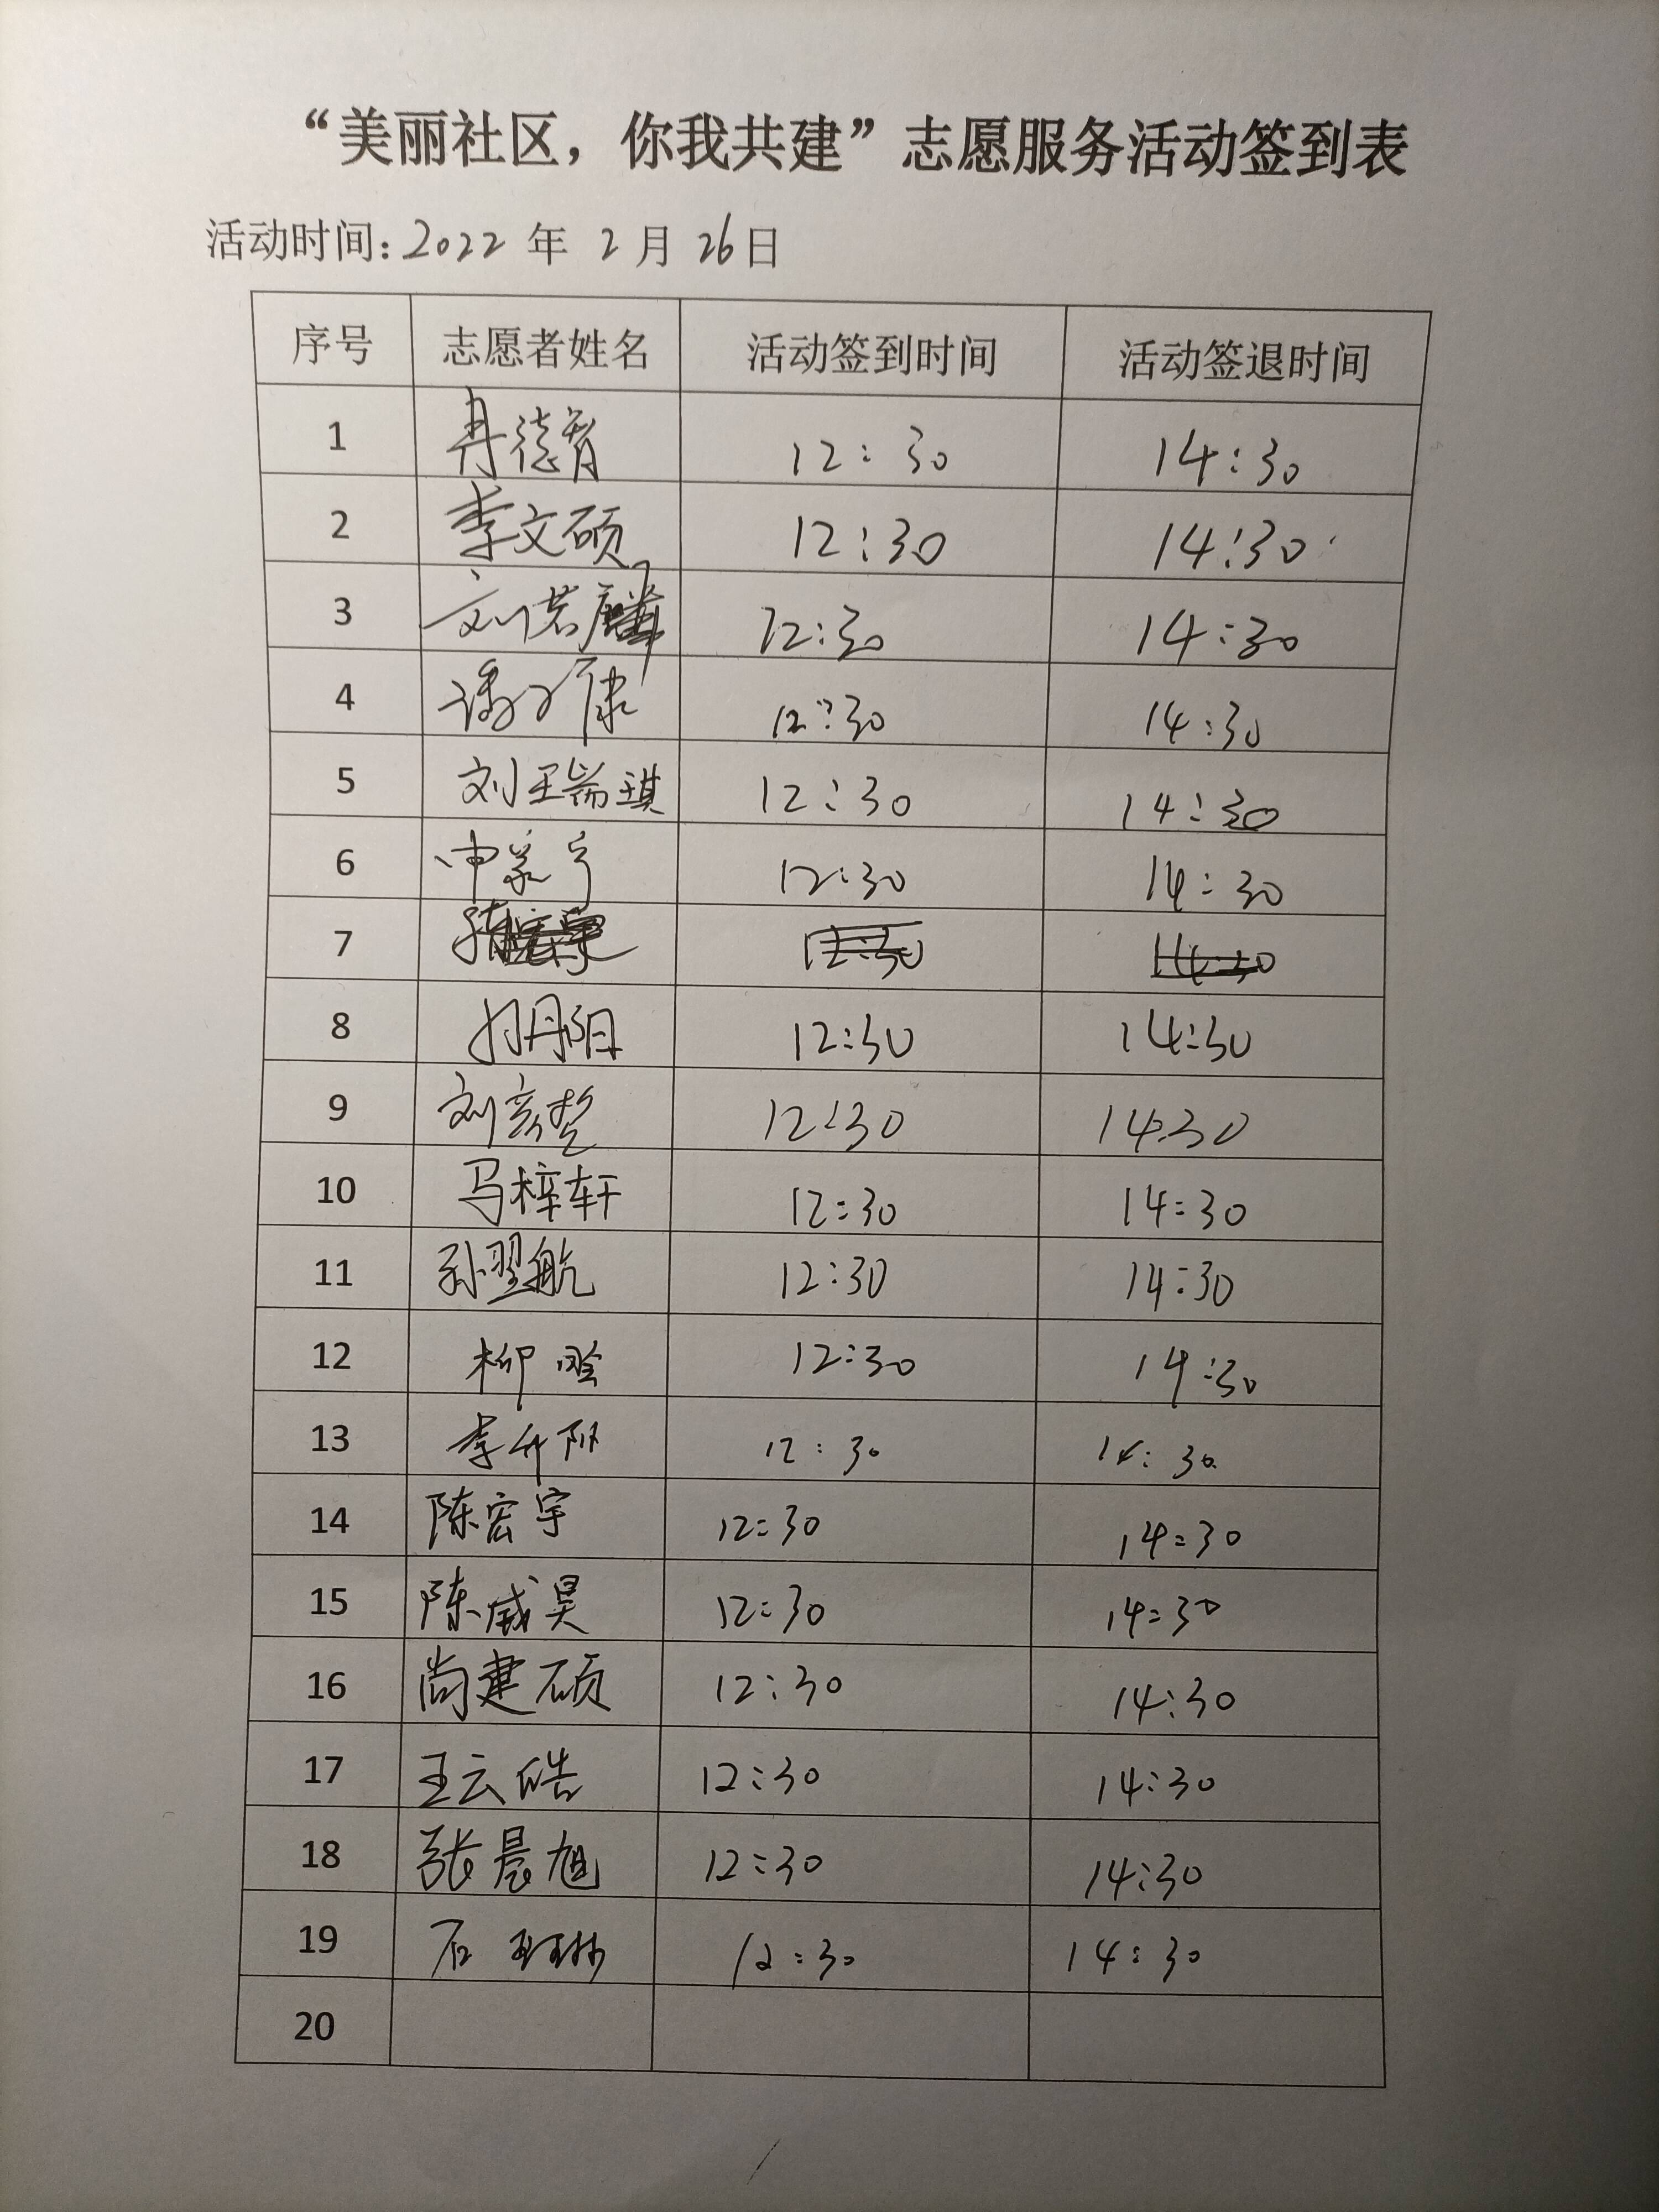 “美丽社区，你我共建”志愿服务活动签到表
活动时间：2022 年 2 月 26日
序号 志愿者姓名 活动签到时间 活动签退时间
1 冉德智 12：30 14：30
2 李文硕 12:30 14:30
3 刘若麟 12:30 14:30
4 潘子康 12:30 14:30
5 刘王瑞琪 12:30 14:30
6 申家宁 12:30 14:30
7 12:30 14:30
8 丹阳 12:30 14:30
9 刘彦哲 12:30 14:30
10 马梓轩 12:30 14:30
11 孙翌航 12:30 14:30
12 柳晗 12:30 14:30
13 李 12:30 14:30
14 陈宏宇 12:30 14:30
15 陈威昊 12:30 14:30
16 尚建硕 12:30 14:30
17 王云皓 12:30 14:30
18 张晨旭 12:30 14:30
19 石 12:30 14:30
20